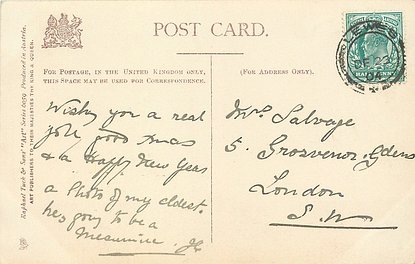 POST CARD.
FOR POSTAGE, IN THE UNITED KINGDOM ONLY,
THIS SPACE MAY BE USED FOR CORRESPONDENCE.
(FOR ADDRESS ONLY.)
LEWES
DE 23
04
HALFPENNY
Raphael Tuck & Sons' "Art" Series 6059 Produced in Austria.
ART PUBLISHERS TO THEIR MAJESTIES THE KING & QUEEN.
Wishing you a real
jolly good Xmas
& a Happy New Year
a Photo of my eldest.
he's going to be a
Mrs Salvage
5. Grosvenor Gdens
London
S.W